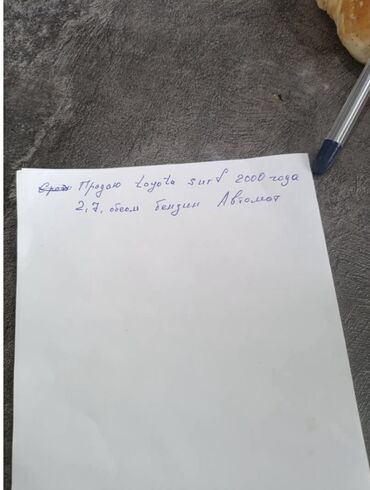 Продаю toyota surf 2000 года
2,7, обеом бензин Автомат